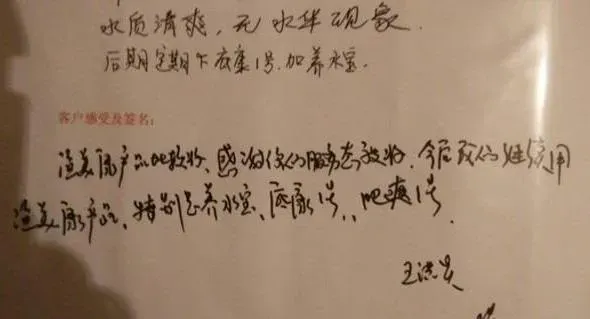 水质清爽，无水华现象.
后期定期下底康1号.加养水宝.
客户感受及签名:
渔美康产品比较好、感谢你们服务态度好、今后我们继续用
渔美康产品、特别是养水宝、底康1号、肥爽1号.
王洪